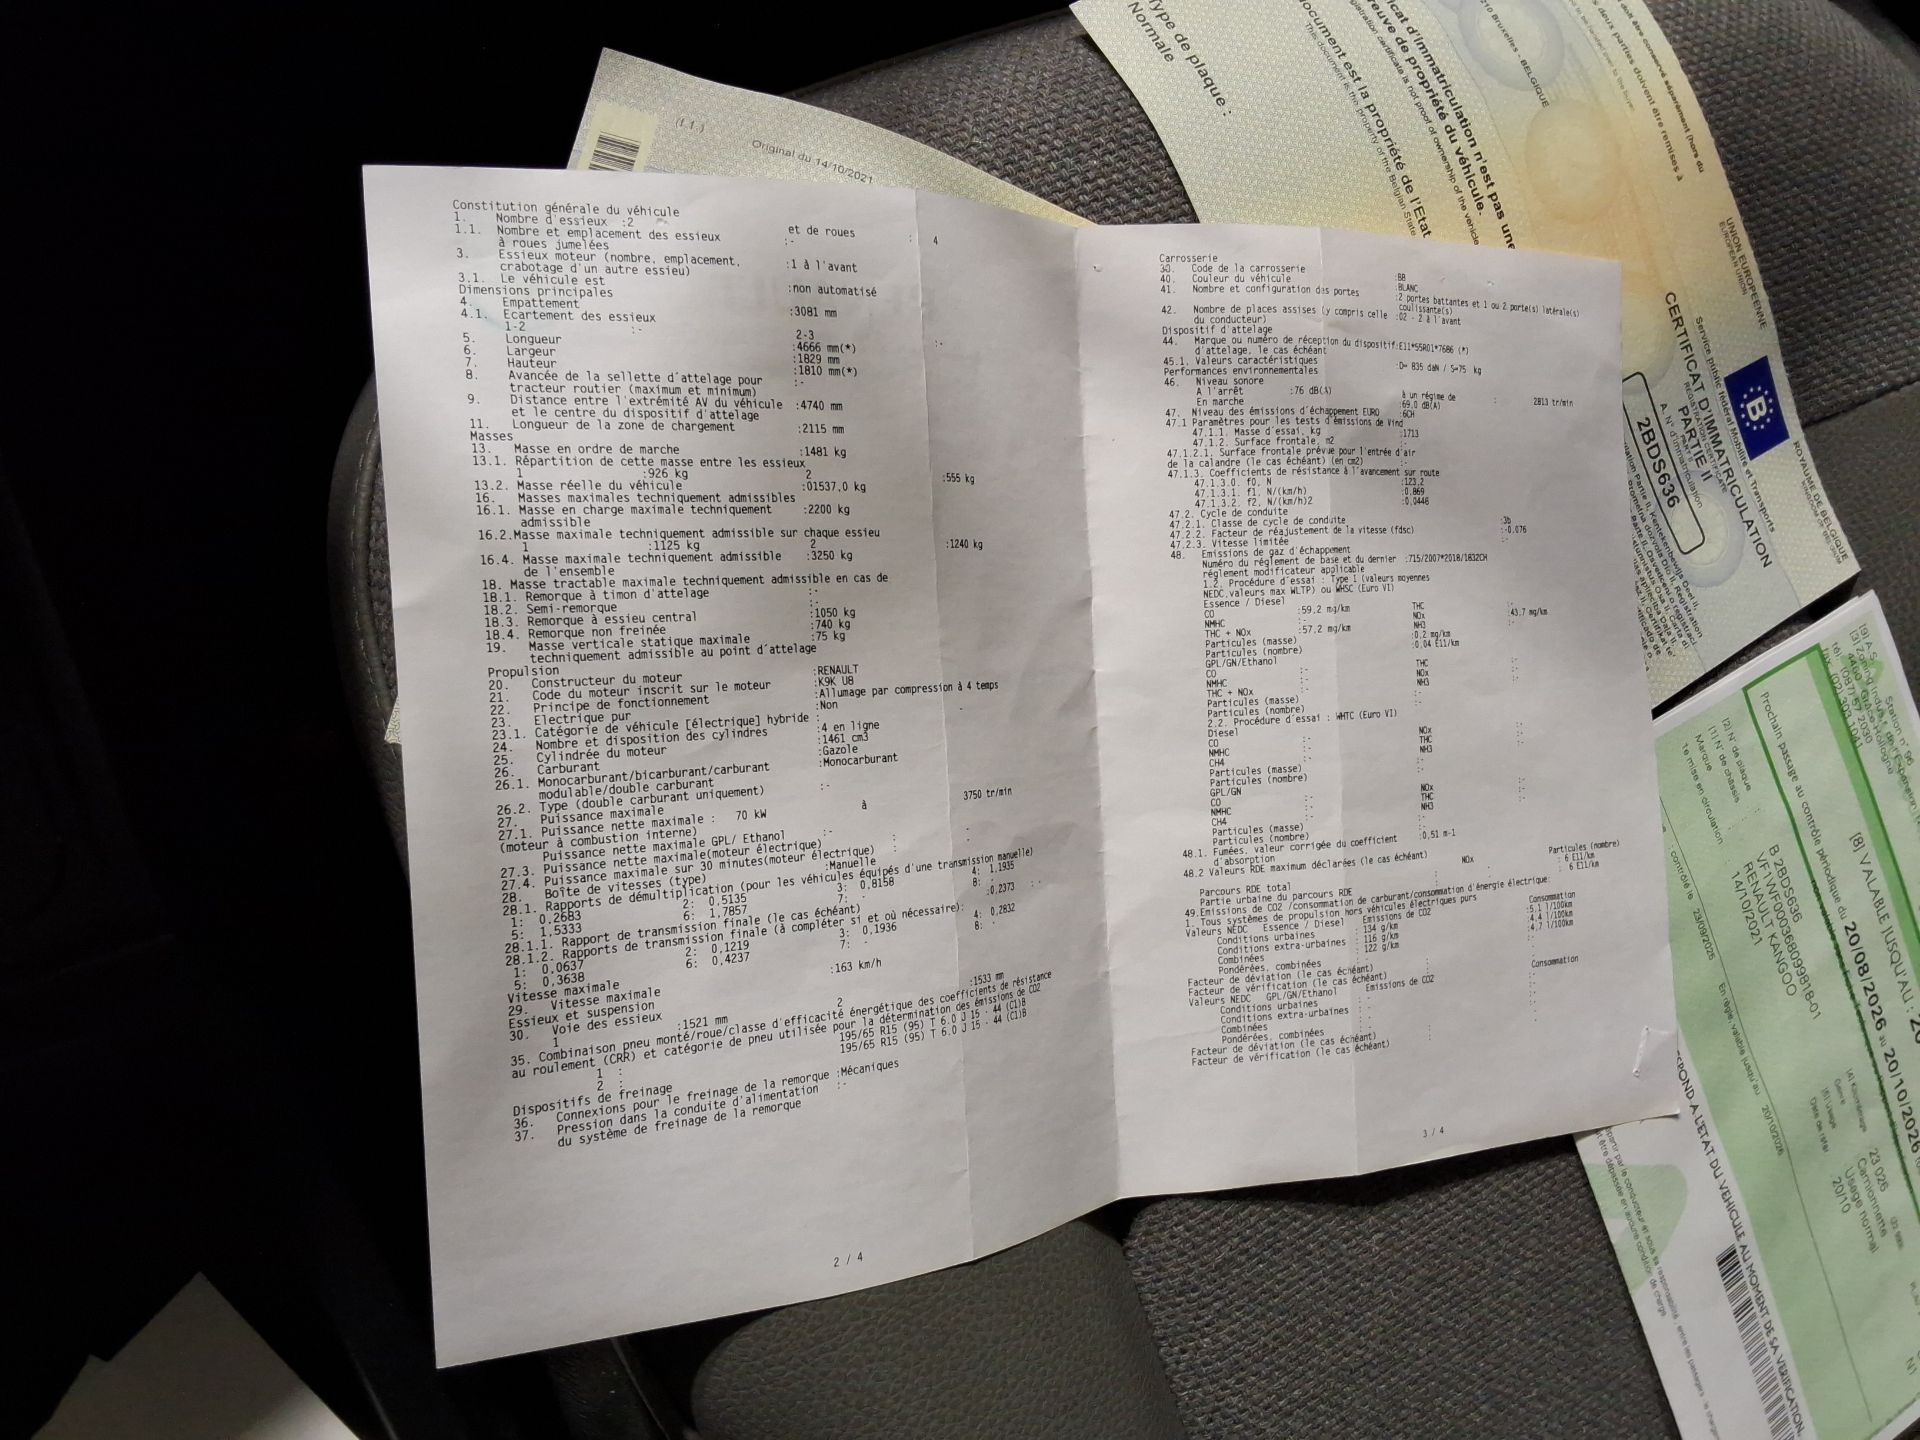 Constitution générale du véhicule
1. Nombre d'essieux :2 et de roues : 4
1.1. Nombre et emplacement des essieux
à roues jumelées :-
3. Essieux moteur (nombre, emplacement, :1 à l'avant
crabotage d'un autre essieu)
3.1. Le véhicule est :non automatisé
Dimensions principales
4. Empattement :3081 mm
4.1. Ecartement des essieux
1-2 :- 2-3 :-
5. Longueur :4666 mm(*)
6. Largeur :1829 mm
7. Hauteur :1810 mm(*)
8. Avancée de la sellette d'attelage pour :-
tracteur routier (maximum et minimum)
9. Distance entre l'extrémité AV du véhicule :4740 mm
et le centre du dispositif d'attelage
11. Longueur de la zone de chargement :2115 mm
Masses
13. Masse en ordre de marche :1481 kg
13.1. Répartition de cette masse entre les essieux
1 :926 kg 2 :555 kg
13.2. Masse réelle du véhicule :01537,0 kg
16. Masses maximales techniquement admissibles
16.1. Masse en charge maximale techniquement :2200 kg
admissible
16.2.Masse maximale techniquement admissible sur chaque essieu
1 :1125 kg 2 :1240 kg
16.4. Masse maximale techniquement admissible :3250 kg
de l'ensemble
18. Masse tractable maximale techniquement admissible en cas de
18.1. Remorque à timon d'attelage :-
18.2. Semi-remorque :-
18.3. Remorque à essieu central :1050 kg
18.4. Remorque non freinée :740 kg
19. Masse verticale statique maximale :75 kg
techniquement admissible au point d'attelage
Propulsion
20. Constructeur du moteur :RENAULT
21. Code du moteur inscrit sur le moteur :K9K U8
22. Principe de fonctionnement :Allumage par compression à 4 temps
23. Electrique pur :Non
23.1. Catégorie de véhicule [électrique] hybride :
24. Nombre et disposition des cylindres :4 en ligne
25. Cylindrée du moteur :1461 cm3
26. Carburant :Gazole
26.1. Monocarburant/bicarburant/carburant :Monocarburant
modulable/double carburant
26.2. Type (double carburant uniquement) :-
27. Puissance maximale
27.1. Puissance nette maximale : 70 kW à 3750 tr/min
(moteur à combustion interne)
Puissance nette maximale GPL/ Ethanol :-
27.3. Puissance nette maximale(moteur électrique) :
27.4. Puissance maximale sur 30 minutes(moteur électrique) :
28. Boîte de vitesses (type) :Manuelle
28.1. Rapports de démultiplication (pour les véhicules équipés d'une transmission manuelle)
1: 0,2683 2: 0,5135 3: 0,8158 4: 1,1935
5: 1,5333 6: 1,7857 7: - 8: -
28.1.1. Rapport de transmission finale (le cas échéant) :0,2373
28.1.2. Rapports de transmission finale (à compléter si et où nécessaire):
1: 0,0637 2: 0,1219 3: 0,1936 4: 0,2832
5: 0,3638 6: 0,4237 7: - 8: -
Vitesse maximale
29. Vitesse maximale :163 km/h
Essieux et suspension
30. Voie des essieux
1 :1521 mm 2 :1533 mm
35. Combinaison pneu monté/roue/classe d'efficacité énergétique des coefficients de résistance
au roulement (CRR) et catégorie de pneu utilisée pour la détermination des émissions de CO2
1 : 195/65 R15 (95) T 6.0 J 15 - 44 (C1)B
2 : 195/65 R15 (95) T 6.0 J 15 - 44 (C1)B
Dispositifs de freinage
36. Connexions pour le freinage de la remorque :Mécaniques
37. Pression dans la conduite d'alimentation :-
du système de freinage de la remorque
2 / 4
Carrosserie
38. Code de la carrosserie :BB
40. Couleur du véhicule :BLANC
41. Nombre et configuration des portes :2 portes battantes et 1 ou 2 porte(s) latérale(s)
coulissante(s)
42. Nombre de places assises (y compris celle :02 - 2 à l'avant
du conducteur)
Dispositif d'attelage
44. Marque ou numéro de réception du dispositif:E11*55R01*7686 (*)
d'attelage, le cas échéant
45.1. Valeurs caractéristiques :D= 835 daN / S=75 kg
Performances environnementales
46. Niveau sonore
A l'arrêt :76 dB(A) à un régime de : 2813 tr/min
En marche :69,0 dB(A)
47. Niveau des émissions d'échappement EURO :6CH
47.1 Paramètres pour les tests d'émissions de Vind
47.1.1. Masse d'essai, kg :1713
47.1.2. Surface frontale, m2 :-
47.1.2.1. Surface frontale prévue pour l'entrée d'air
de la calandre (le cas échéant) (en cm2) :-
47.1.3. Coefficients de résistance à l'avancement sur route
47.1.3.0. f0, N :123,2
47.1.3.1. f1, N/(km/h) :0.869
47.1.3.2. f2, N/(km/h)2 :0,0446
47.2. Cycle de conduite
47.2.1. Classe de cycle de conduite :3b
47.2.2. Facteur de réajustement de la vitesse (fdsc) :-0.076
47.2.3. Vitesse limitée :-
48. Emissions de gaz d'échappement
Numéro du réglement de base et du dernier :715/2007*2018/1832CH
règlement modificateur applicable
1.2. Procédure d'essai : Type I (valeurs moyennes
NEDC,valeurs max WLTP) ou WHSC (Euro VI)
Essence / Diesel
CO :59,2 mg/km THC :-
NMHC :- NOx :43.7 mg/km
THC + NOx :57.2 mg/km NH3 :-
Particules (masse) :0,2 mg/km
Particules (nombre) :0,04 E11/km
GPL/GN/Ethanol
CO :- THC :-
NMHC :- NOx :-
THC + NOx :- NH3 :-
Particules (masse) :-
Particules (nombre) :-
2.2. Procédure d'essai : WHTC (Euro VI)
Diesel
CO :- NOx :-
NMHC :- THC :-
CH4 :- NH3 :-
Particules (masse) :-
Particules (nombre) :-
GPL/GN
CO :- NOx :-
NMHC :- THC :-
CH4 :- NH3 :-
Particules (masse) :-
Particules (nombre) :-
48.1. Fumées, valeur corrigée du coefficient :0,51 m-1
d'absorption
48.2 Valeurs RDE maximum déclarées (le cas échéant)
NOx Particules (nombre)
Parcours RDE total : : 6 E11/km
Partie urbaine du parcours RDE : : 6 E11/km
49.Emissions de CO2 /consommation de carburant/consommation d'énergie électrique:
1. Tous systèmes de propulsion hors véhicules électriques purs
Valeurs NEDC Essence / Diesel Emissions de CO2 Consommation
Conditions urbaines : 134 g/km :5,1 l/100km
Conditions extra-urbaines : 116 g/km :4,4 l/100km
Combinées : 122 g/km :4,7 l/100km
Pondérées, combinées : - :-
Facteur de déviation (le cas échéant) :
Facteur de vérification (le cas échéant) :
Valeurs NEDC GPL/GN/Ethanol Emissions de CO2 Consommation
Conditions urbaines : - :-
Conditions extra-urbaines : - :-
Combinées : - :-
Pondérées, combinées : - :-
Facteur de déviation (le cas échéant) :
Facteur de vérification (le cas échéant) :
3 / 4
(I.1.)
Original du 14/10/2021
Type de plaque :
Normale
document est la propriété de l'Etat
This document is the property of the Belgian State
icat d'immatriculation n'est pas une
reuve de propriété du véhicule.
registration certificate is not proof of ownership of the vehicle
210 Bruxelles - BELGIQUE
doit être conservé séparément (hors du
s deux parties doivent être remises à
to be handed over to the buyer
UNION EUROPEENNE
EUROPEAN UNION
ROYAUME DE BELGIQUE
KINGDOM OF BELGIUM
B
Service public fédéral Mobilité et Transports
CERTIFICAT D'IMMATRICULATION
REGISTRATION CERTIFICATE
PARTIE II
PART II
A. N° d'immatriculation
2BDS636
Station n° 96
[9] A.S.
[3] Zoning Indus. de
4460 Grâce-Hollogne
[8] VALABLE JUSQU'AU :
Prochain passage au contrôle périodique du 20/08/2026 au 20/10/2026
[2] N° de plaque : B 2BDS636
[1] N° de châssis : VF1WF000368099818-01
Marque : RENAULT KANGOO
1e mise en circulation : 14/10/2021
[4] Kilométrage 23 026
Genre Camionnette
[6] Usage Usage normal
contrôlé 23/09/2025
En règle, valable jusqu'au 20/10/2026
N1
SPOND A L'ETAT DU VEHICULE AU MOMENT DE SA VERIFICATION.